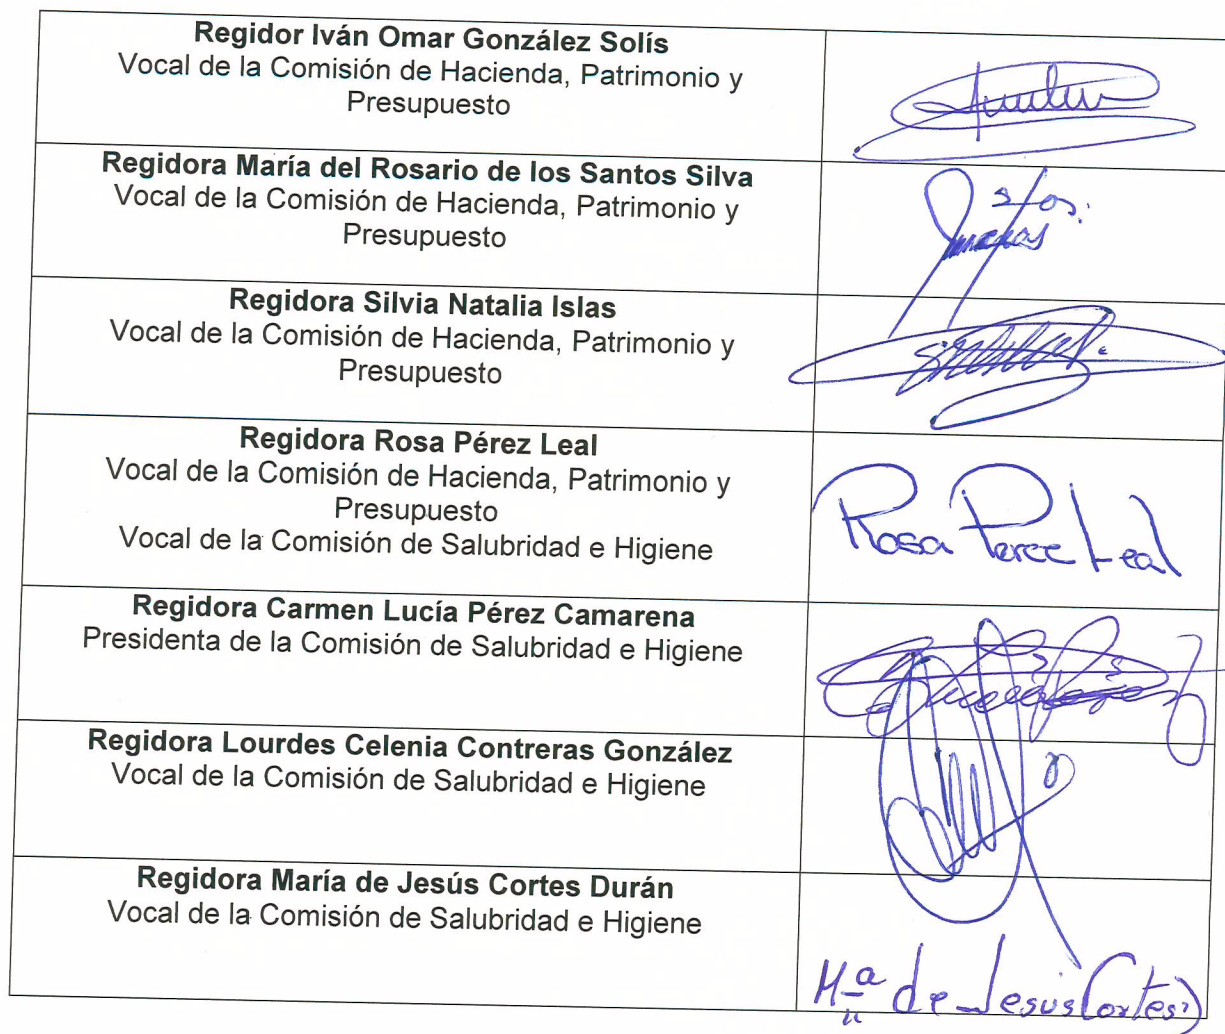 Regidor Iván Omar González Solís
Vocal de la Comisión de Hacienda, Patrimonio y
Presupuesto
Regidora María del Rosario de los Santos Silva
Vocal de la Comisión de Hacienda, Patrimonio y
Presupuesto
Regidora Silvia Natalia Islas
Vocal de la Comisión de Hacienda, Patrimonio y
Presupuesto
Regidora Rosa Pérez Leal
Vocal de la Comisión de Hacienda, Patrimonio y
Presupuesto
Vocal de la Comisión de Salubridad e Higiene
Rosa Perez Leal
Regidora Carmen Lucía Pérez Camarena
Presidenta de la Comisión de Salubridad e Higiene
Regidora Lourdes Celenia Contreras González
Vocal de la Comisión de Salubridad e Higiene
Regidora María de Jesús Cortes Durán
Vocal de la Comisión de Salubridad e Higiene
Mª de Jesus Cortes